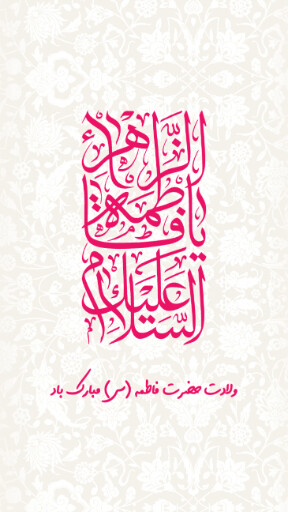 السلام علیك
یا فاطمة
الزهراء
ولادت حضرت فاطمه (س) مبارک باد